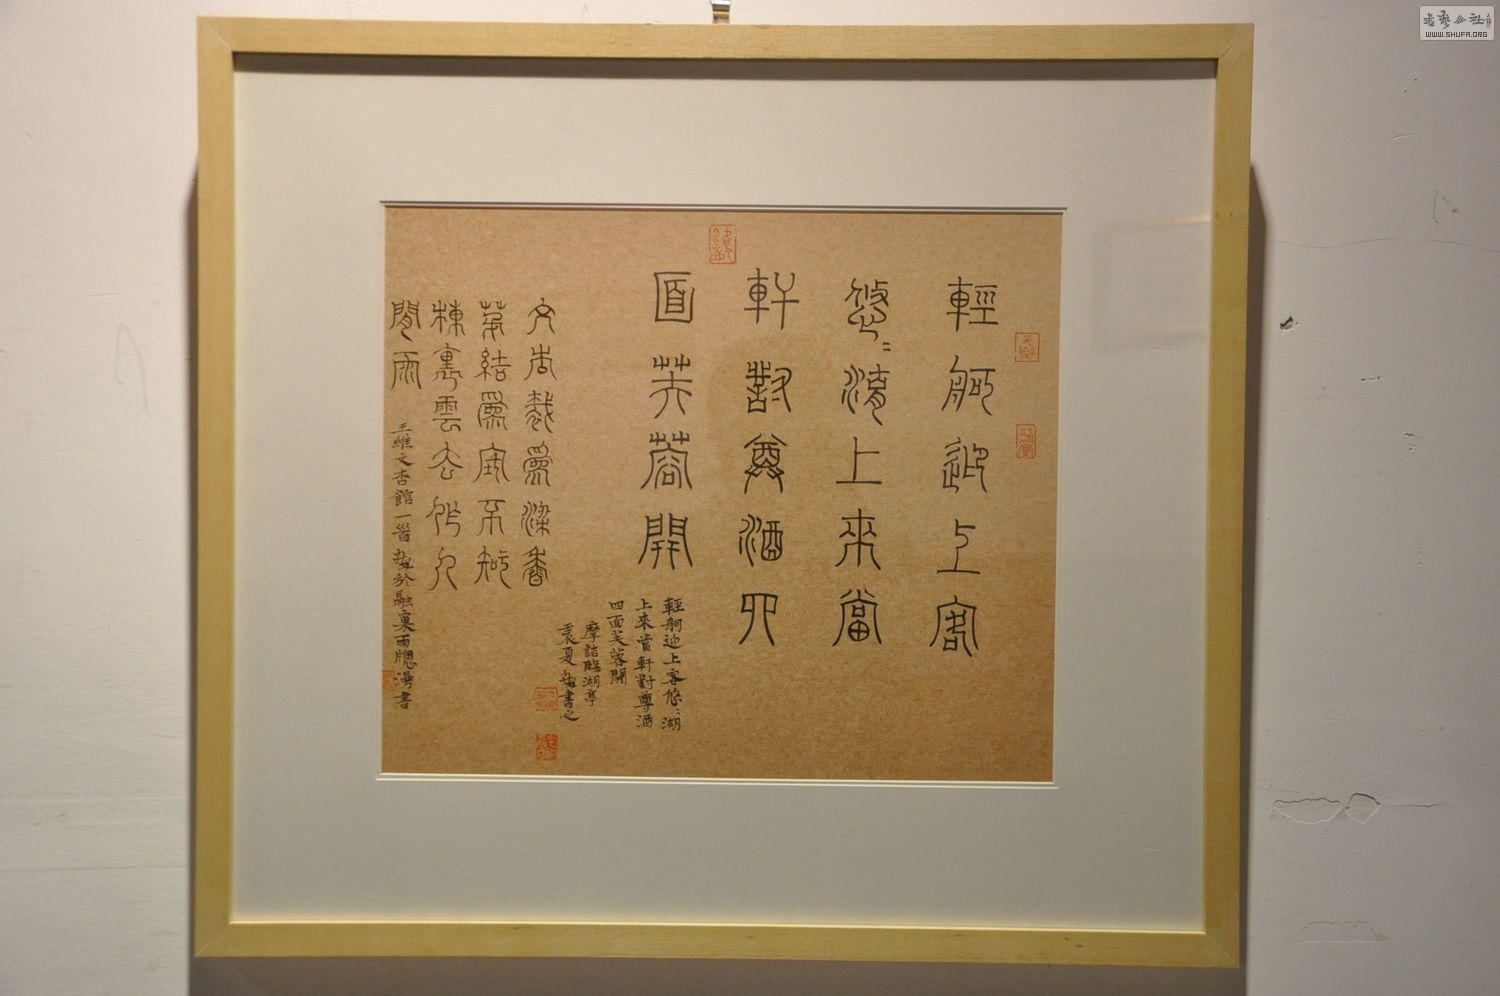 輕舸迎上客
悠〻湖上來當
軒對尊酒四
面芙蓉開
輕舸迎上客悠〻湖
上來當軒對尊酒
四面芙蓉開
摩詰臨湖亭
書之
文杏裁爲梁香
茅結爲宇不知
棟裏雲去作人
間雨
王維文杏館一首
書
WWW.SHUFA.ORG